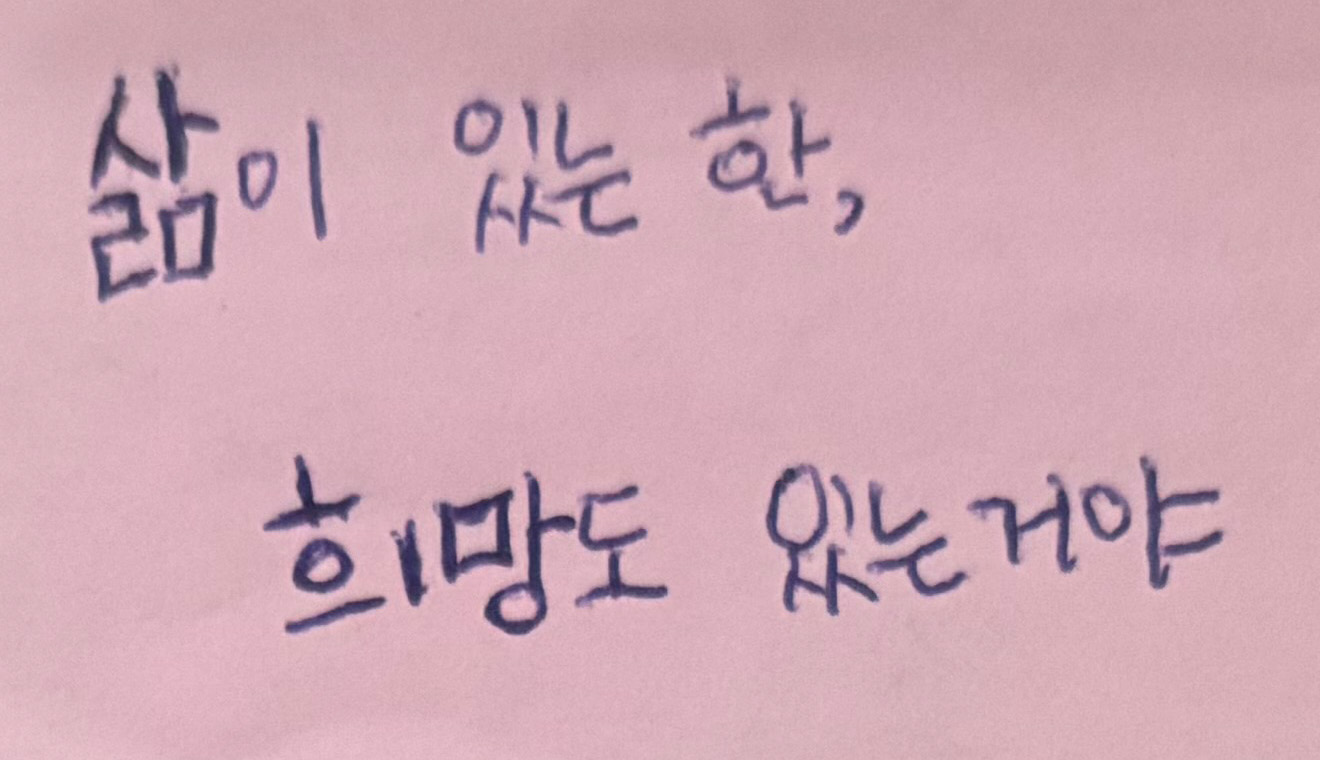 삶이 있는 한,
희망도 있는거야